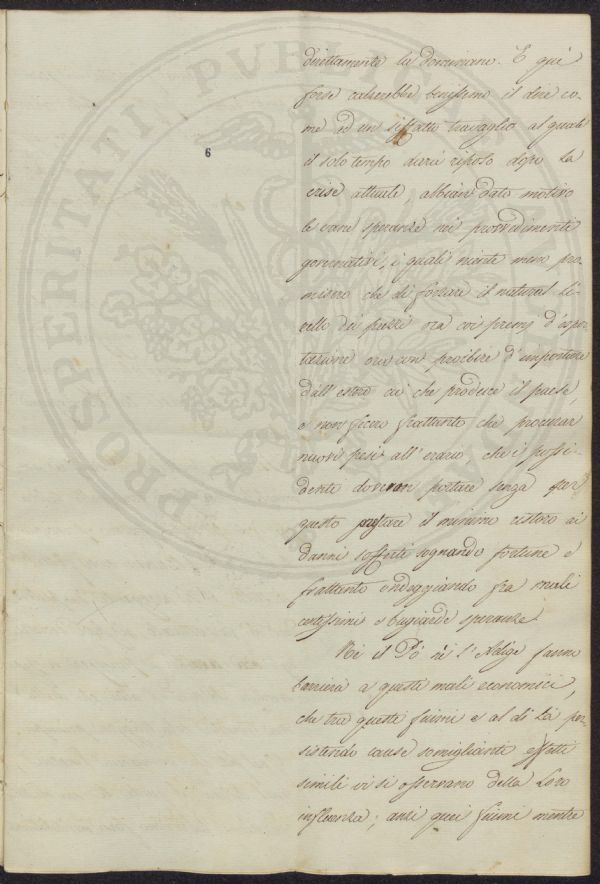 PROSPERITATI PUBLICAE
6
direttamente la dominano. E quì
forse caderebbe benissimo il dire co-
me ad un siffatto travaglio al quale
il solo tempo darà riposo dopo la
crise attuale, abbian dato motivo
le vane speranze nei provvedimenti
governativi, i quali niente meno pro-
misero che di forzare il natural li-
vello dei prezzi ora coi premj d'espor-
tazione ora con proibire d'importare
dall'estero ciò che produce il paese,
e non fecero frattanto che procurar
nuovi pesi all'erario, che i possi-
denti doveron portare senza per
questo prestare il minimo ristoro ai
danni sofferti sognando fortune e
frattanto ondeggiando fra mali
certissimi e bugiarde speranze.
Nè il Pò nè l'Adige fanno
barriera a questi mali economici,
che tra questi fiumi e al di là per-
sistendo cause somiglianti effetti
simili vi si osservano della loro
influenza; anzi quei fiumi mentre